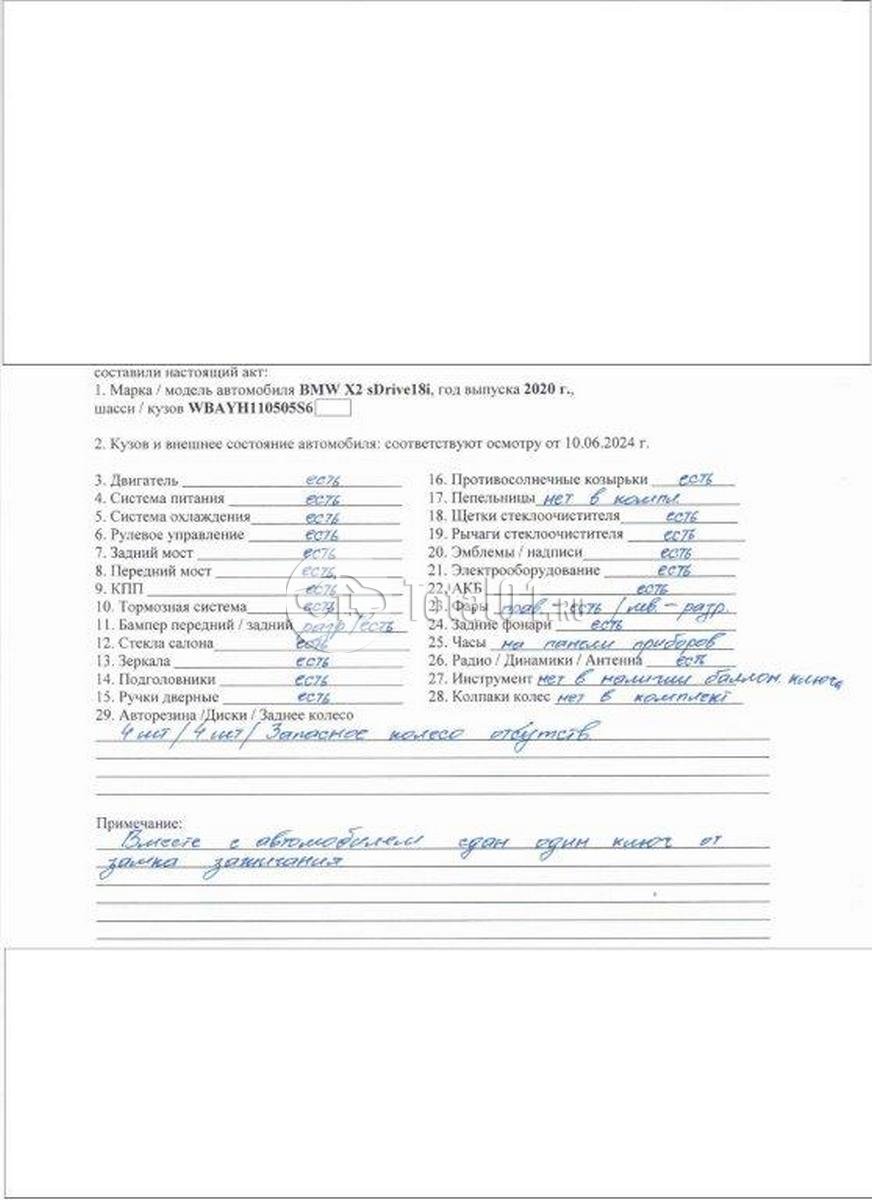 составили настоящий акт:
1. Марка / модель автомобиля BMW X2 sDrive18i, год выпуска 2020 г.,
шасси / кузов WBAYH110505S6
2. Кузов и внешнее состояние автомобиля: соответствуют осмотру от 10.06.2024 г.
3. Двигатель есть
4. Система питания есть
5. Система охлаждения есть
6. Рулевое управление есть
7. Задний мост есть
8. Передний мост есть
9. КПП есть
10. Тормозная система есть
11. Бампер передний / задний разр / есть
12. Стекла салона есть
13. Зеркала есть
14. Подголовники есть
15. Ручки дверные есть
16. Противосолнечные козырьки есть
17. Пепельницы нет в компл.
18. Щетки стеклоочистителя есть
19. Рычаги стеклоочистителя есть
20. Эмблемы / надписи есть
21. Электрооборудование есть
22. АКБ есть
23. Фары прав. - есть / лев - разр.
24. Задние фонари есть
25. Часы на панели приборов
26. Радио / Динамики / Антенна есть
27. Инструмент нет в наличии баллон. ключа
28. Колпаки колес нет в комплект
29. Авторезина /Диски / Заднее колесо
4 шт / 4 шт / Запасное колесо отсутств.
Примечание:
Вместе с автомобилем сдан один ключ от
замка зажигания
Total01.RU